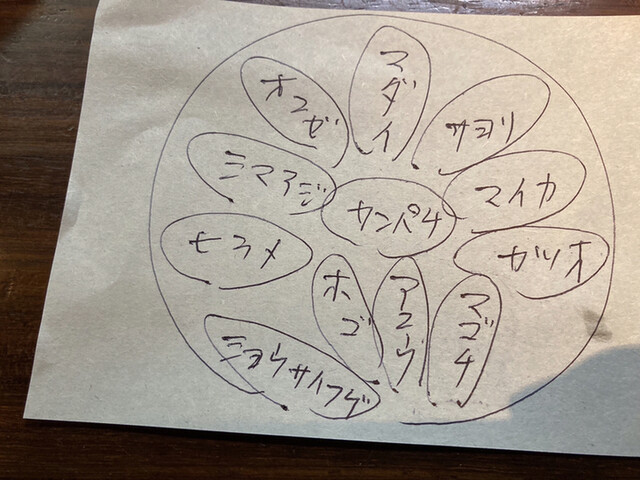 マダイ
オコゼ
サヨリ
シマアジ
カンパチ
マイカ
ヒラメ
カツオ
ホゴ
アコウ
マゴチ
ショウサイフグ